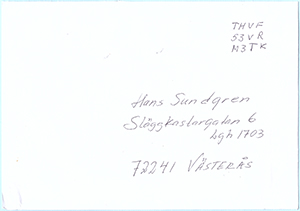 THVF
53VR
M3TK
Hans Sundgren
Släggkastargatan 6
Lgh 1703
72241 VÄSTERÅS